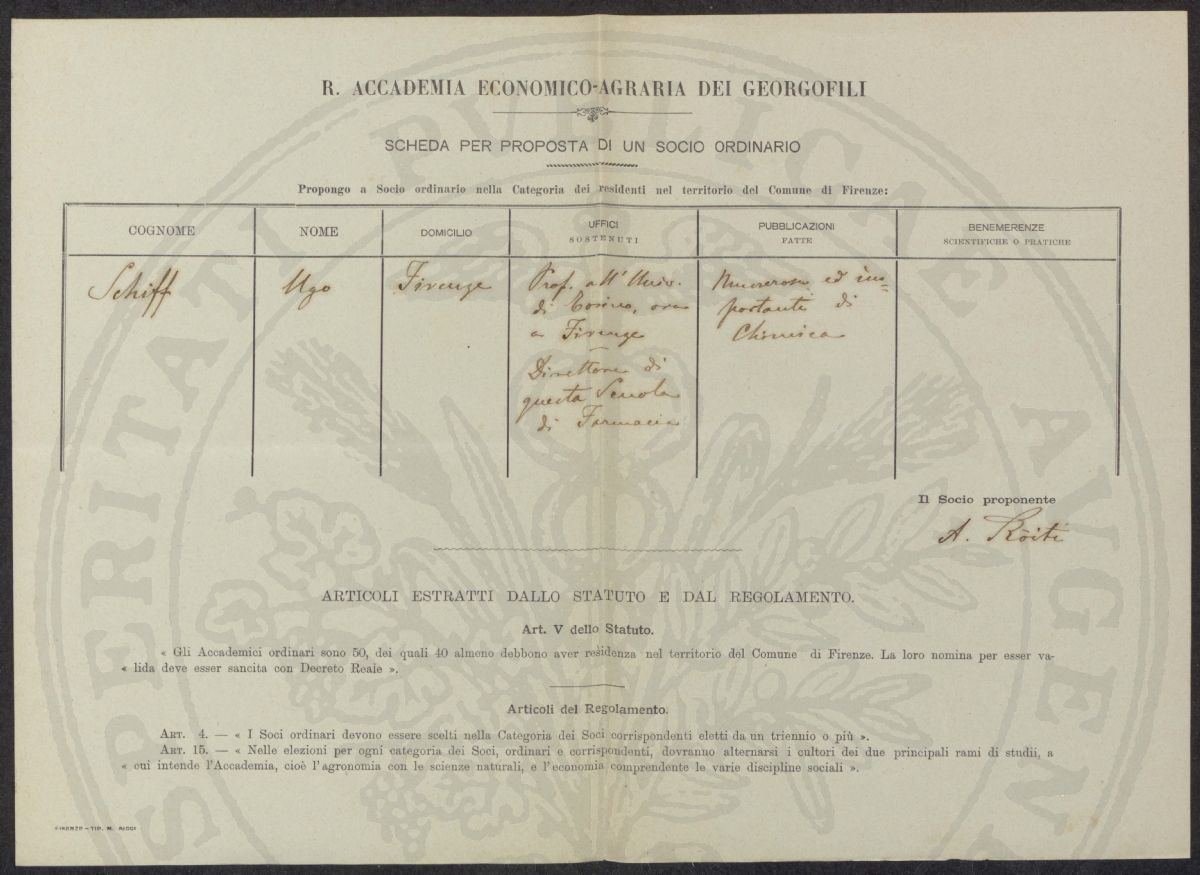 R. ACCADEMIA ECONOMICO-AGRARIA DEI GEORGOFILI
SCHEDA PER PROPOSTA DI UN SOCIO ORDINARIO
Propongo a Socio ordinario nella Categoria dei residenti nel territorio del Comune di Firenze:
COGNOME
NOME
DOMICILIO
UFFICI
SOSTENUTI
PUBBLICAZIONI
FATTE
BENEMERENZE
SCIENTIFICHE O PRATICHE
Schiff
Ugo
Firenze
Prof. all' Univ.
di Torino, ora
a Firenze
Direttore di
questa Scuola
di Farmacia
Numerose ed im=
portanti di
Chimica
Il Socio proponente
A. Ròiti
ARTICOLI ESTRATTI DALLO STATUTO E DAL REGOLAMENTO.
Art. V dello Statuto.
« Gli Accademici ordinari sono 50, dei quali 40 almeno debbono aver residenza nel territorio del Comune di Firenze. La loro nomina per esser va-
« lida deve esser sancita con Decreto Reale ».
Articoli del Regolamento.
ART. 4. — « I Soci ordinari devono essere scelti nella Categoria dei Soci corrispondenti eletti da un triennio o più ».
ART. 15. — « Nelle elezioni per ogni categoria dei Soci, ordinari e corrispondenti, dovranno alternarsi i cultori dei due principali rami di studii, a
« cui intende l'Accademia, cioè l'agronomia con le scienze naturali, e l'economia comprendente le varie discipline sociali ».
FIRENZE - TIP. M. RICCI
PROSPERITATI PUBLICAE AVGENDAE